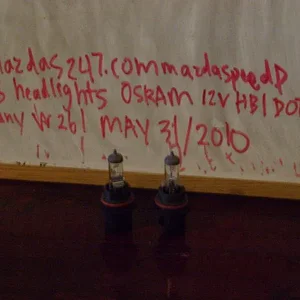 mazdas247.com mazdaspeedP
headlights OSRAM 12V HB1 DOT
any Vr26! MAY 31/2010